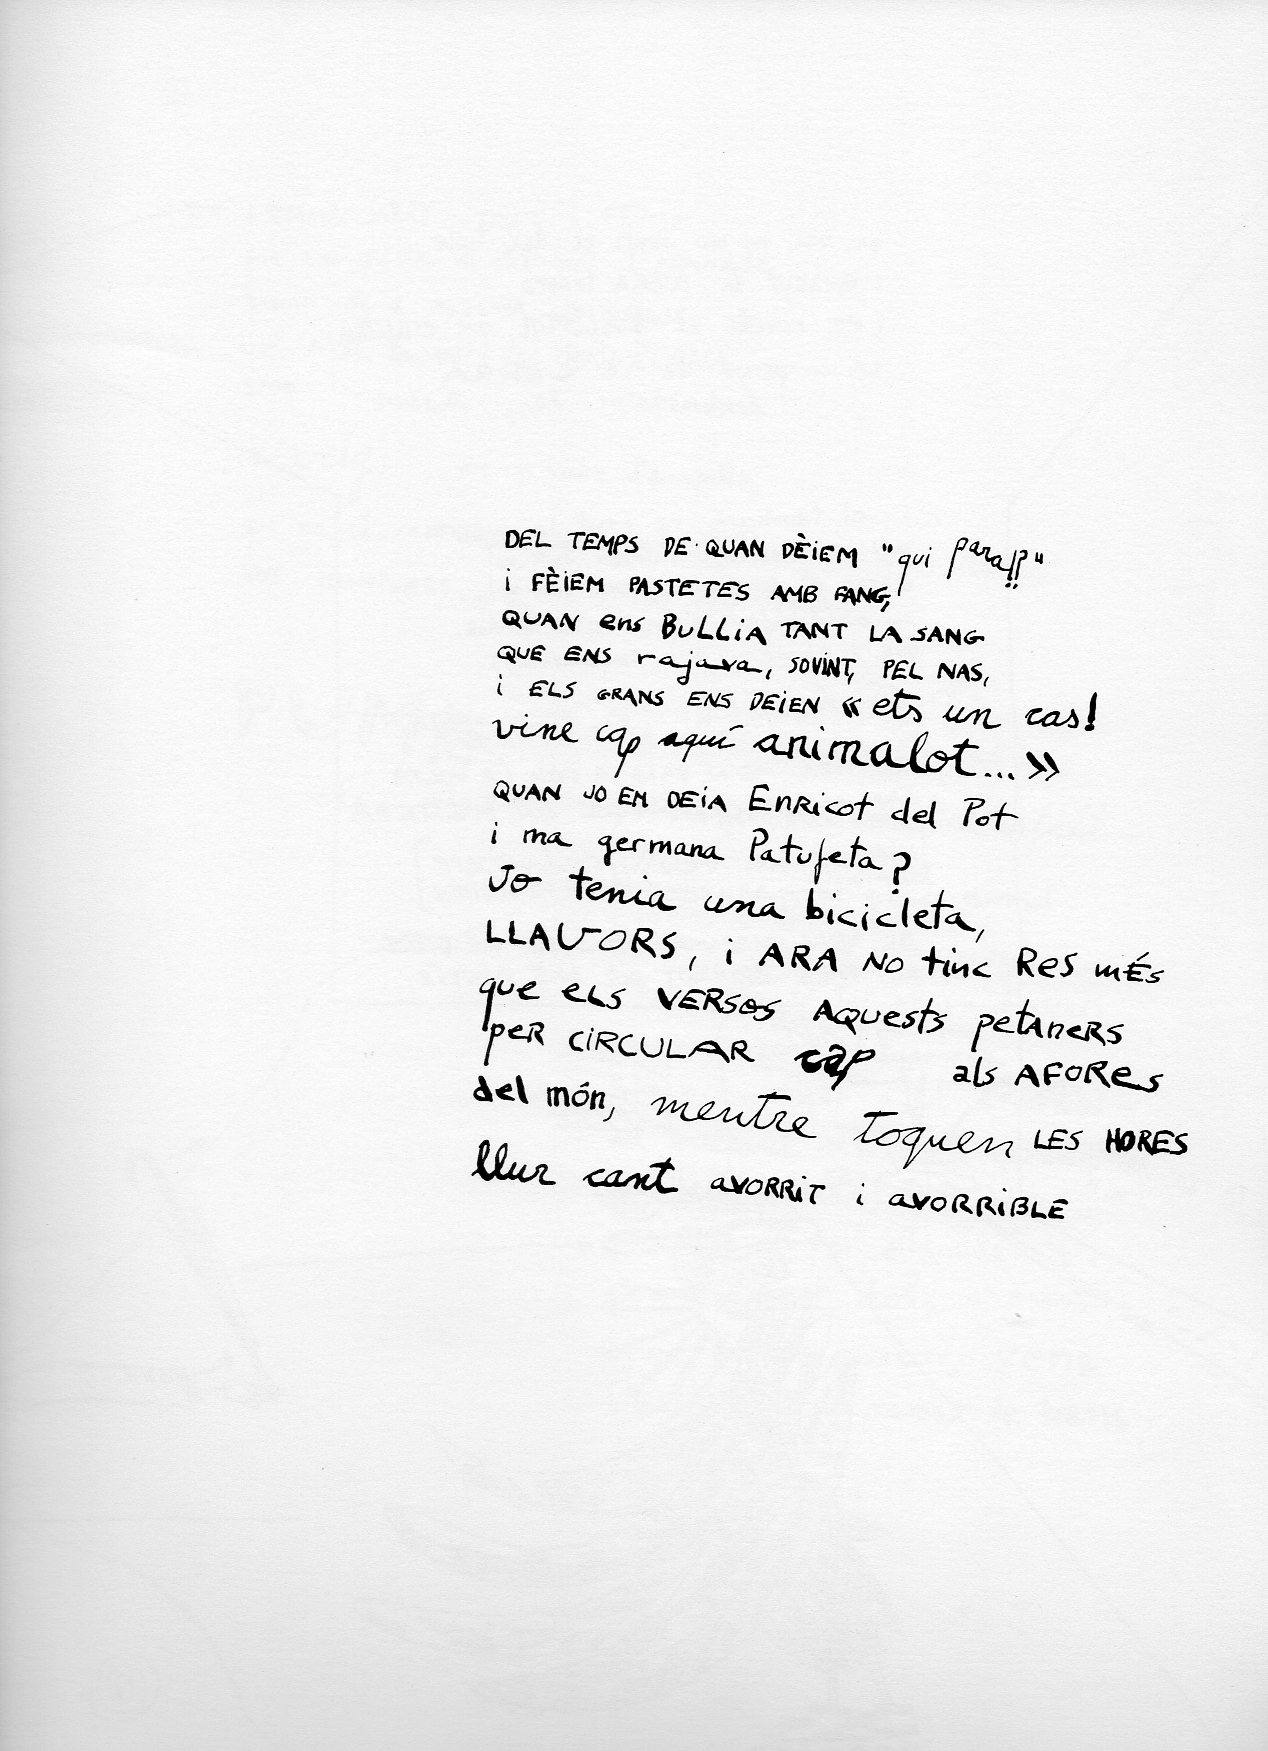 DEL TEMPS DE QUAN DÈIEM "qui para!?"
i FÈIEM PASTETES AMB FANG,
QUAN ens BULLIA TANT LA SANG
QUE ENS rajava, SOVINT, PEL NAS,
i ELS GRANS ENS DEIEN «ets un cas!
vine cap aquí animalot...»
QUAN JO EM DEIA Enricot del Pot
i ma germana Patufeta?
Jo tenia una bicicleta,
LLAVORS, i ARA NO tinc Res mÉs
que eLS VERSOS AQuests petaners
peR CIRCULAR cap als AFORes
del món, mentre toquen LES HORES
llur cant avorrit i avorrible